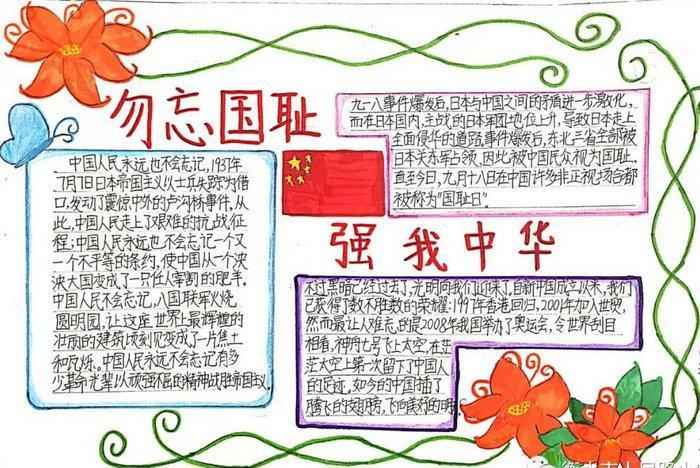 勿忘国耻
九一八事件爆发后,日本与中国之间的矛盾进一步激化,
而在日本国内,主战的日本军团地位上升,导致日本走上
全面侵华的道路事件爆发后,东北三省全部被
日本关东军占领,因此被中国民众视为国耻。
直至今日,九月十八日在中国许多非正式场合都
被称为"国耻日"。
中国人民永远也不会忘记,1937年
7月7日日本帝国主义以士兵失踪为借
口,发动了震惊中外的卢沟桥事件。从
此,中国人民走上了艰难的抗战征
程;中国人民永远也不会忘记一个又
一个不平等的条约,使中国从一个泱
泱大国变成了一只任人宰割的肥羊。
中国人民不会忘记,八国联军火烧
圆明园,让这座世界上最辉煌的
壮丽的建筑顷刻见变成了一片焦土
和瓦烁。中国人民永远不会忘记有多
少革命先辈以顽强不屈的精神战胜帝国主义。
强我中华
不过黑暗已经过去了,光明向我们迎来了,自新中国成立以来,我们
已获得了数不胜数的荣耀:1997年香港回归,2001年加入世贸,
然而最让人难忘的是2008年我国举办了奥运会,令世界刮目
相看,神舟七号飞上太空,在茫
茫太空上第一次留下了中国人
的足迹,如今的中国插了
腾飞的翅膀,飞向美好的明